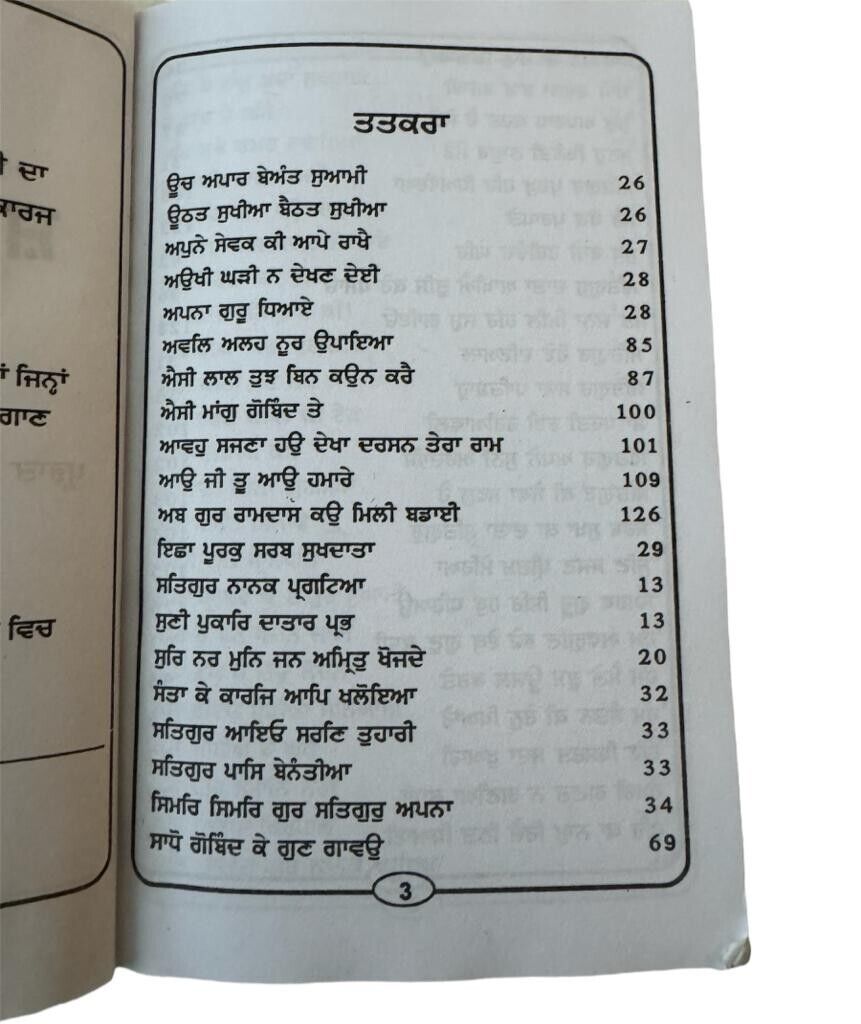 ੀ ਦਾ
ਕਾਰਜ
ਜਿਨ੍ਹਾਂ
ਗਾਣ
ਵਿਚ
ਤਤਕਰਾ
ਊਚ ਅਪਾਰ ਬੇਅੰਤ ਸੁਆਮੀ 26
ਊਠਤ ਸੁਖੀਆ ਬੈਠਤ ਸੁਖੀਆ 26
ਅਪੁਨੇ ਸੇਵਕ ਕੀ ਆਪੇ ਰਾਖੈ 27
ਅਉਖੀ ਘੜੀ ਨ ਦੇਖਣ ਦੇਈ 28
ਅਪਨਾ ਗੁਰੂ ਧਿਆਏ 28
ਅਵਲਿ ਅਲਹ ਨੂਰ ਉਪਾਇਆ 85
ਐਸੀ ਲਾਲ ਤੁਝ ਬਿਨ ਕਉਨ ਕਰੈ 87
ਐਸੀ ਮਾਂਗੁ ਗੋਬਿੰਦ ਤੇ 100
ਆਵਹੁ ਸਜਣਾ ਹਉ ਦੇਖਾ ਦਰਸਨ ਤੇਰਾ ਰਾਮ 101
ਆਉ ਜੀ ਤੂ ਆਉ ਹਮਾਰੇ 109
ਅਬ ਗੁਰ ਰਾਮਦਾਸ ਕਉ ਮਿਲੀ ਬਡਾਈ 126
ਇਛਾ ਪੂਰਕੁ ਸਰਬ ਸੁਖਦਾਤਾ 29
ਸਤਿਗੁਰ ਨਾਨਕ ਪ੍ਰਗਟਿਆ 13
ਸੁਣੀ ਪੁਕਾਰਿ ਦਾਤਾਰ ਪ੍ਰਭ 13
ਸੁਰਿ ਨਰ ਮੁਨਿ ਜਨ ਅਮ੍ਰਿਤੁ ਖੋਜਦੇ 20
ਸੰਤਾ ਕੇ ਕਾਰਜਿ ਆਪਿ ਖਲੋਇਆ 32
ਸਤਿਗੁਰ ਆਇਓ ਸਰਣਿ ਤੁਹਾਰੀ 33
ਸਤਿਗੁਰ ਪਾਸਿ ਬੇਨੰਤੀਆ 33
ਸਿਮਰਿ ਸਿਮਰਿ ਗੁਰ ਸਤਿਗੁਰੁ ਅਪਨਾ 34
ਸਾਧੋ ਗੋਬਿੰਦ ਕੇ ਗੁਣ ਗਾਵਉ 69
3